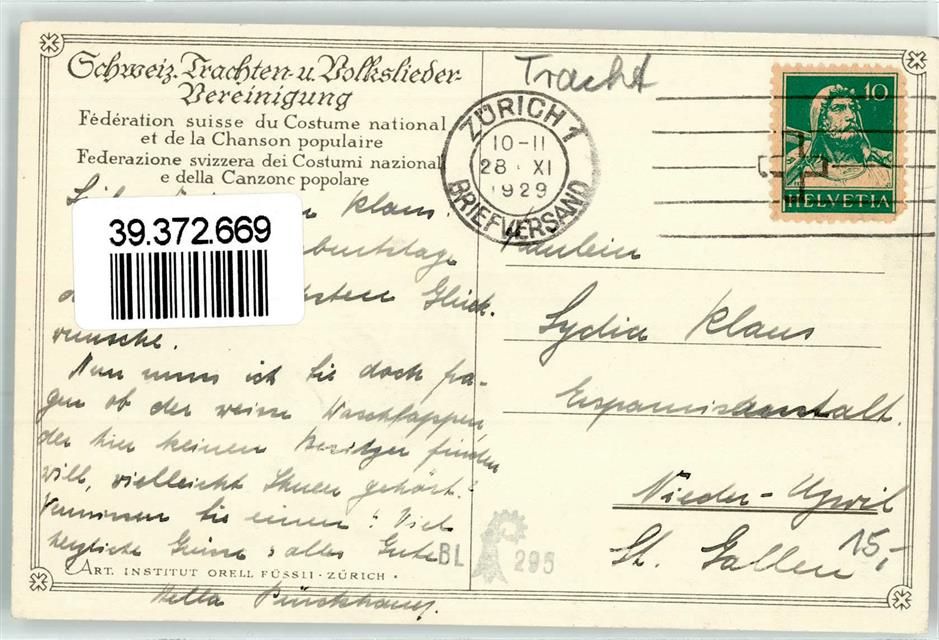 Schweiz. Trachten- u. Volkslieder-
Vereinigung
Fédération suisse du Costume national
et de la Chanson populaire
Federazione svizzera dei Costumi nazionali
e della Canzone popolare
Klaus.
39.372.669
Glück-
wünsche.
Nun muss ich Sie doch fra-
gen ob der weisse Waschlappen,
der hier keinen Besitzer finden
will, vielleicht Ihnen gehört?
Vermissen Sie einen? Viel
herzliche Grüsse & alles Gute
ART. INSTITUT ORELL FÜSSLI · ZÜRICH ·
Hella
Tracht
ZÜRICH 1
10-11
28. XI
1929
BRIEFVERSAND
10
HELVETIA
Fräulein
Lydia Klaus
Nieder-Uzwil
St. Gallen
15,-
BL 295